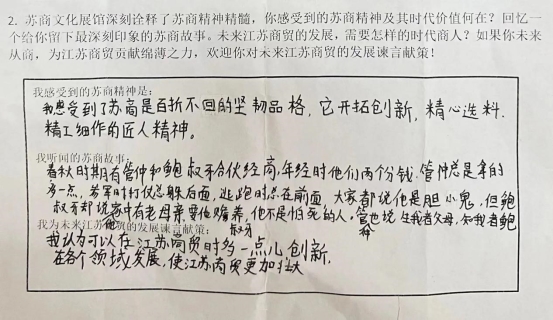 2. 苏商文化展馆深刻诠释了苏商精神精髓，你感受到的苏商精神及其时代价值何在？回忆一
个给你留下最深刻印象的苏商故事。未来江苏商贸的发展，需要怎样的时代商人？如果你未来
从商，为江苏商贸贡献绵薄之力，欢迎你对未来江苏商贸的发展谏言献策！
我感受到的苏商精神是：
我感受到了苏商是百折不回的坚韧品格，它开拓创新，精心选料
精工细作的匠人精神。
我听闻的苏商故事：
春秋时期有管仲和鲍叔牙合伙经商，年经时他们两个分钱，管仲总是拿的
多一点，参军时打仗总躲后面，逃跑时总在前面，大家都说他是胆小鬼，但鲍
叔牙却说家中有老母亲要他赡养，他不是怕死的人，管仲也说生我者父母，知我者鲍
叔牙
我为未来江苏商贸谏言献策：
我认为可以在江苏商贸时多一点儿创新，
在各个领域发展，使江苏商贸更加壮大